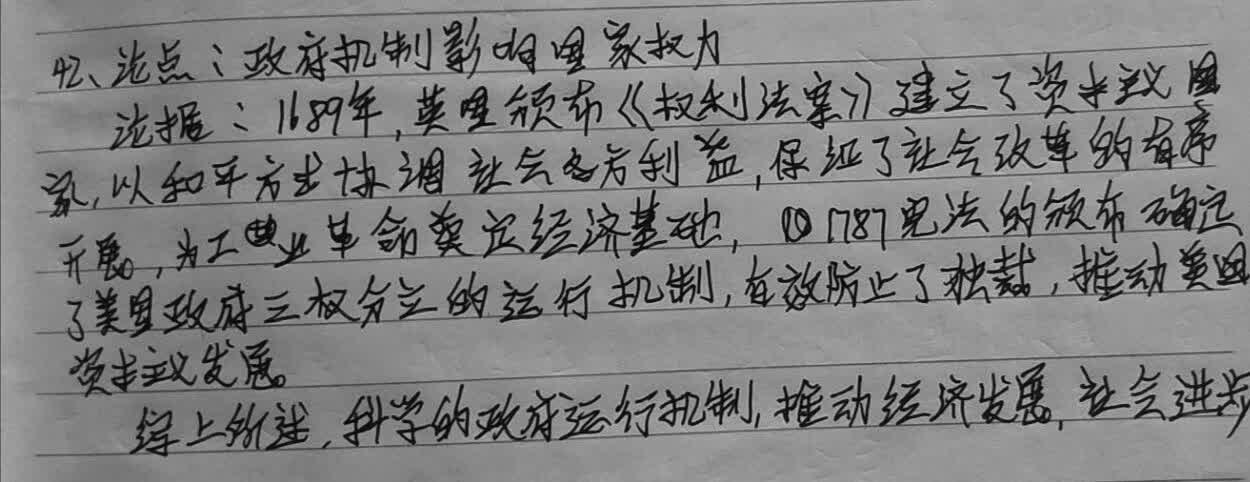 42、论点：政府机制影响国家权力
论据：1689年,英国颁布《权利法案》建立了资本主义国
家,以和平方式协调社会各方利益,保证了社会改革的有序
开展。,为工业革命奠定经济基础, 1787宪法的颁布确定
了美国政府三权分立的运行机制,有效防止了独裁,推动美国
资本主义发展。
综上所述,科学的政府运行机制,推动经济发展,社会进步